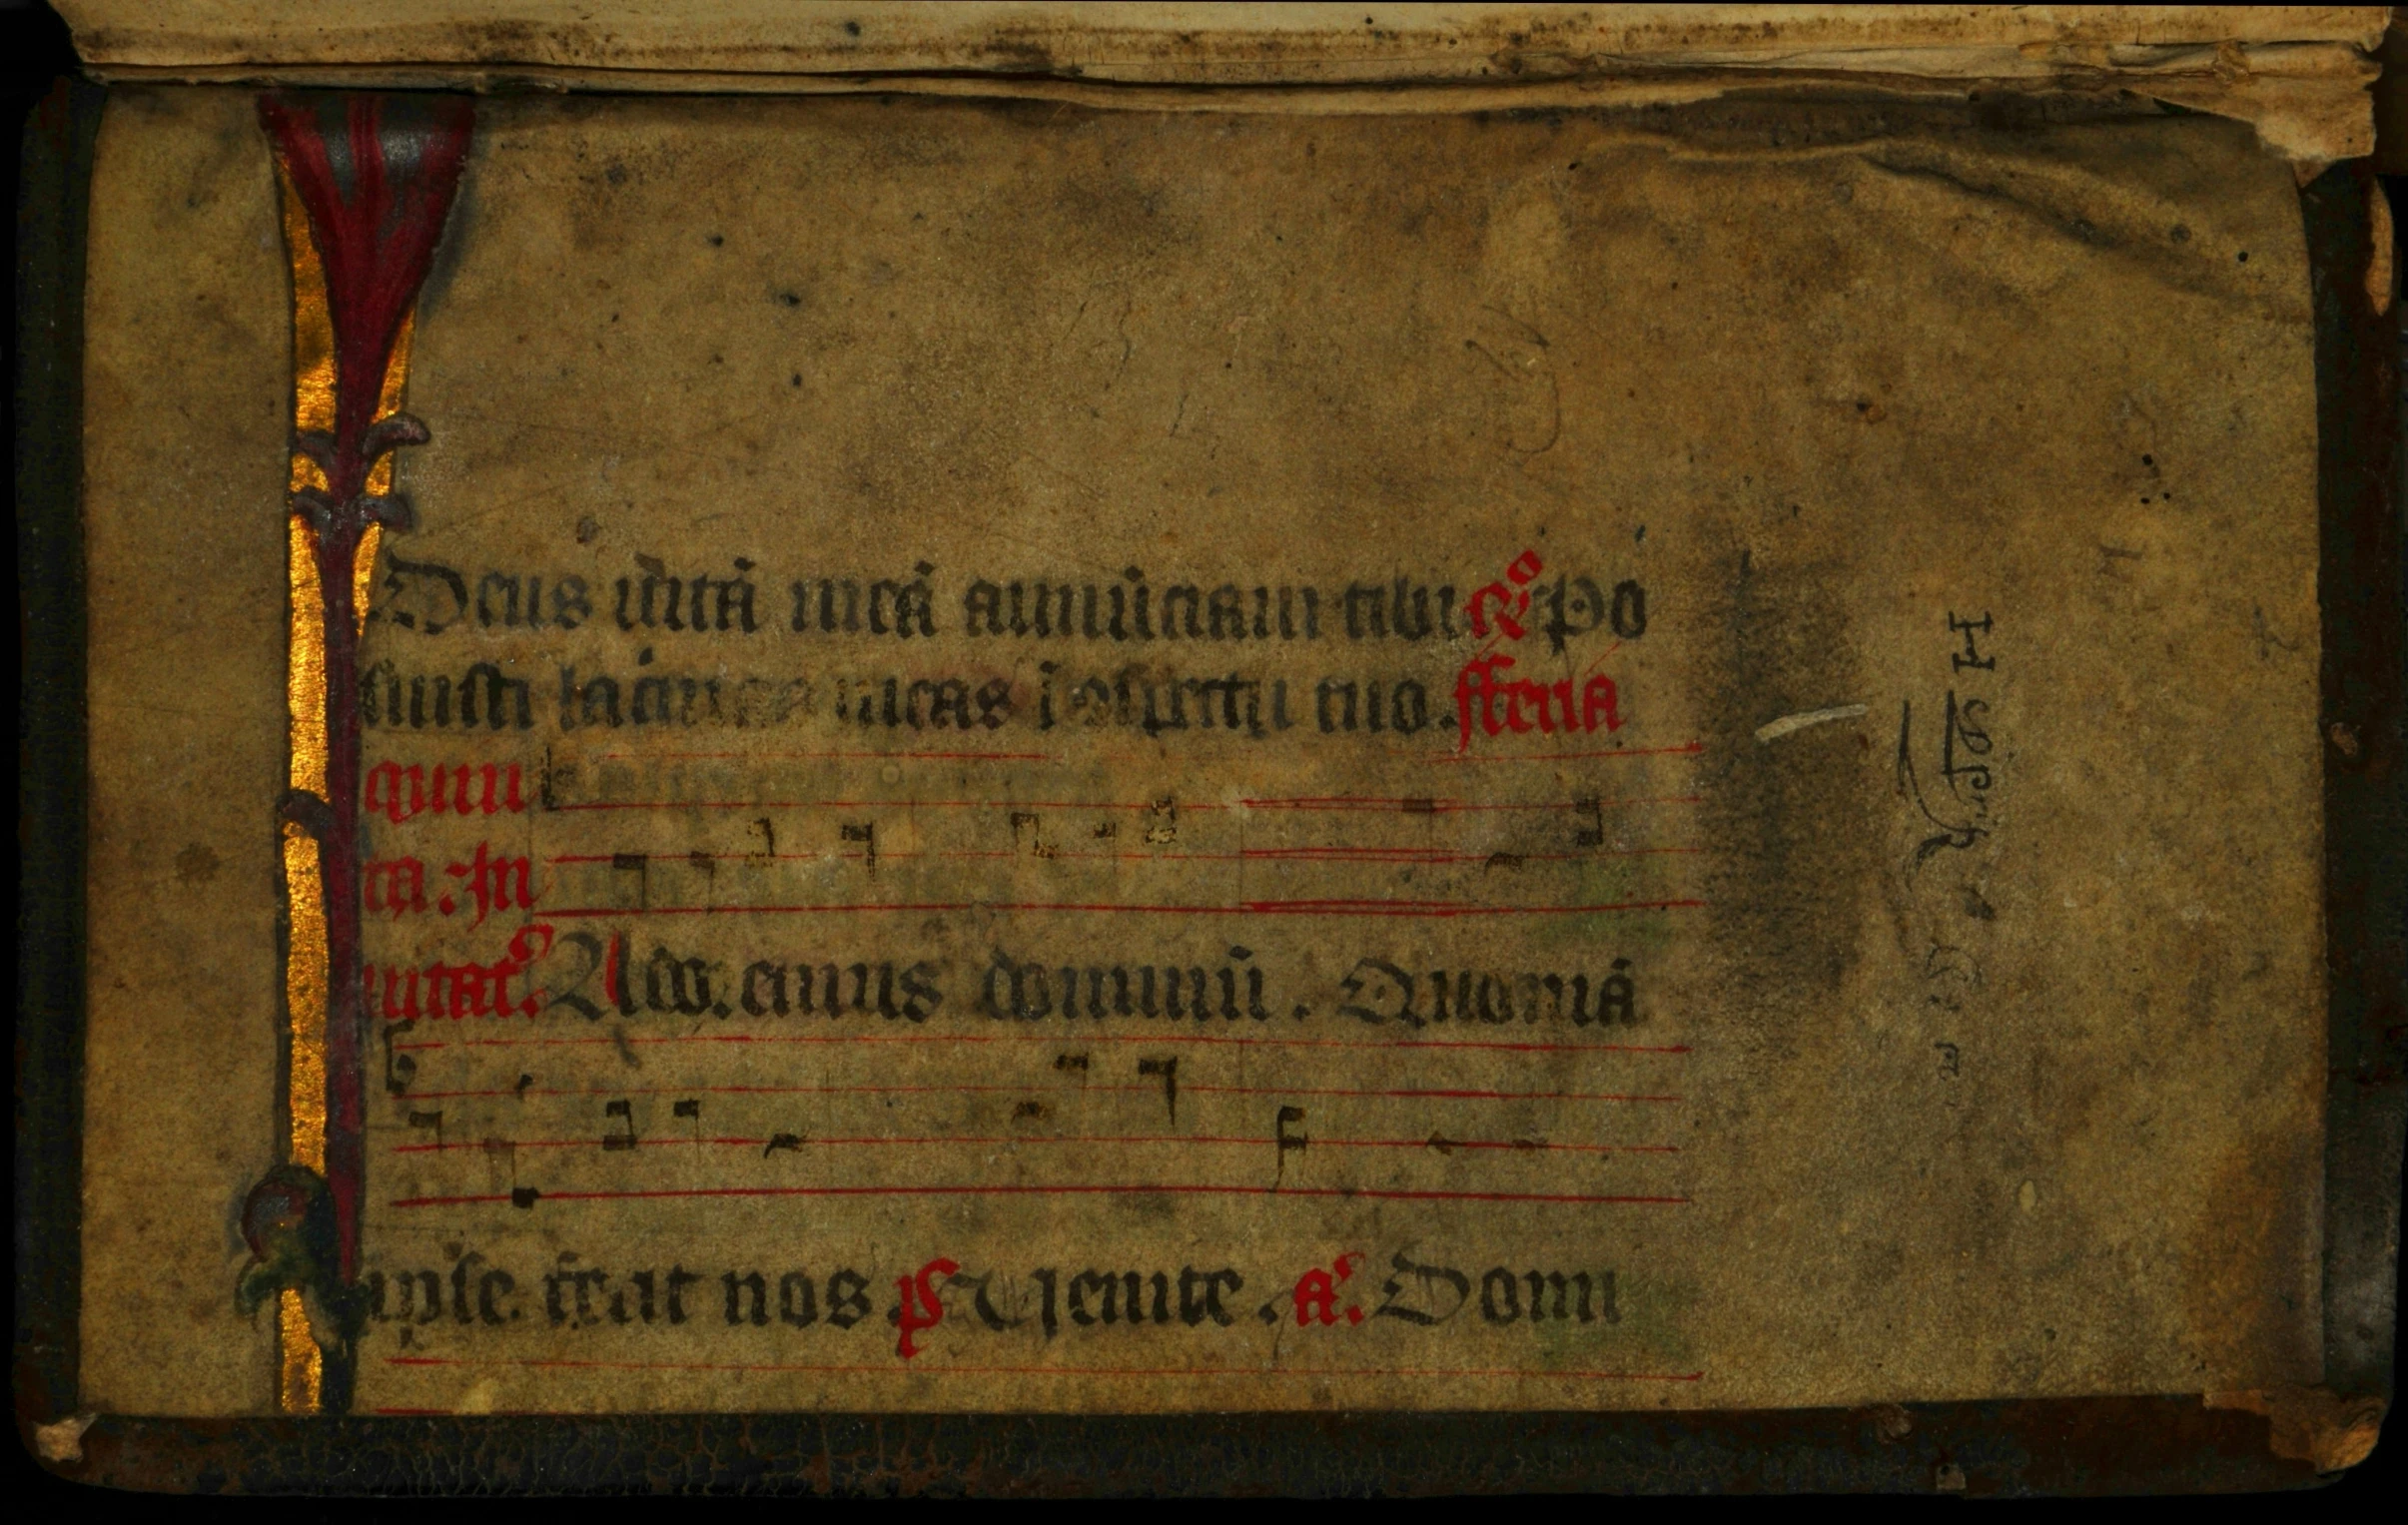 Deus uitā meā annūciaui tibi R⁰ Po
suisti lacrimas meas ī ɔspectu tuo. fferia
quin
ta. In
uitat᷒. Ado. cimus dominū. Quoniā
ipse fecit nos ps Uenite. a᷒. Domi